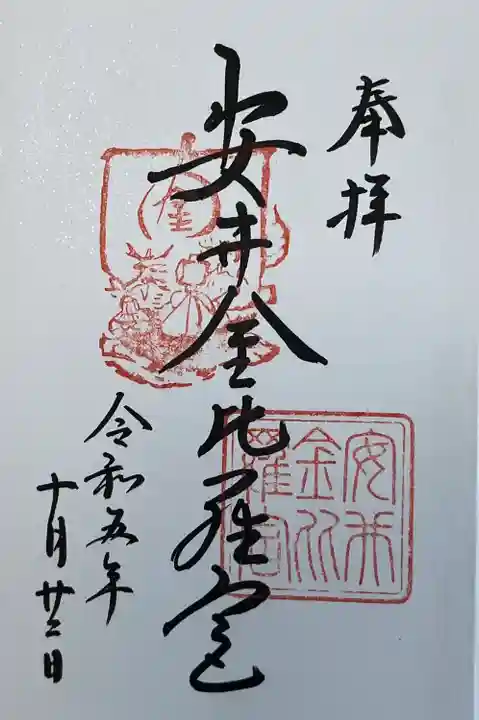 奉拝
安井金比羅宮
令和五年
十月廿二日
金
安井
金比
羅宮